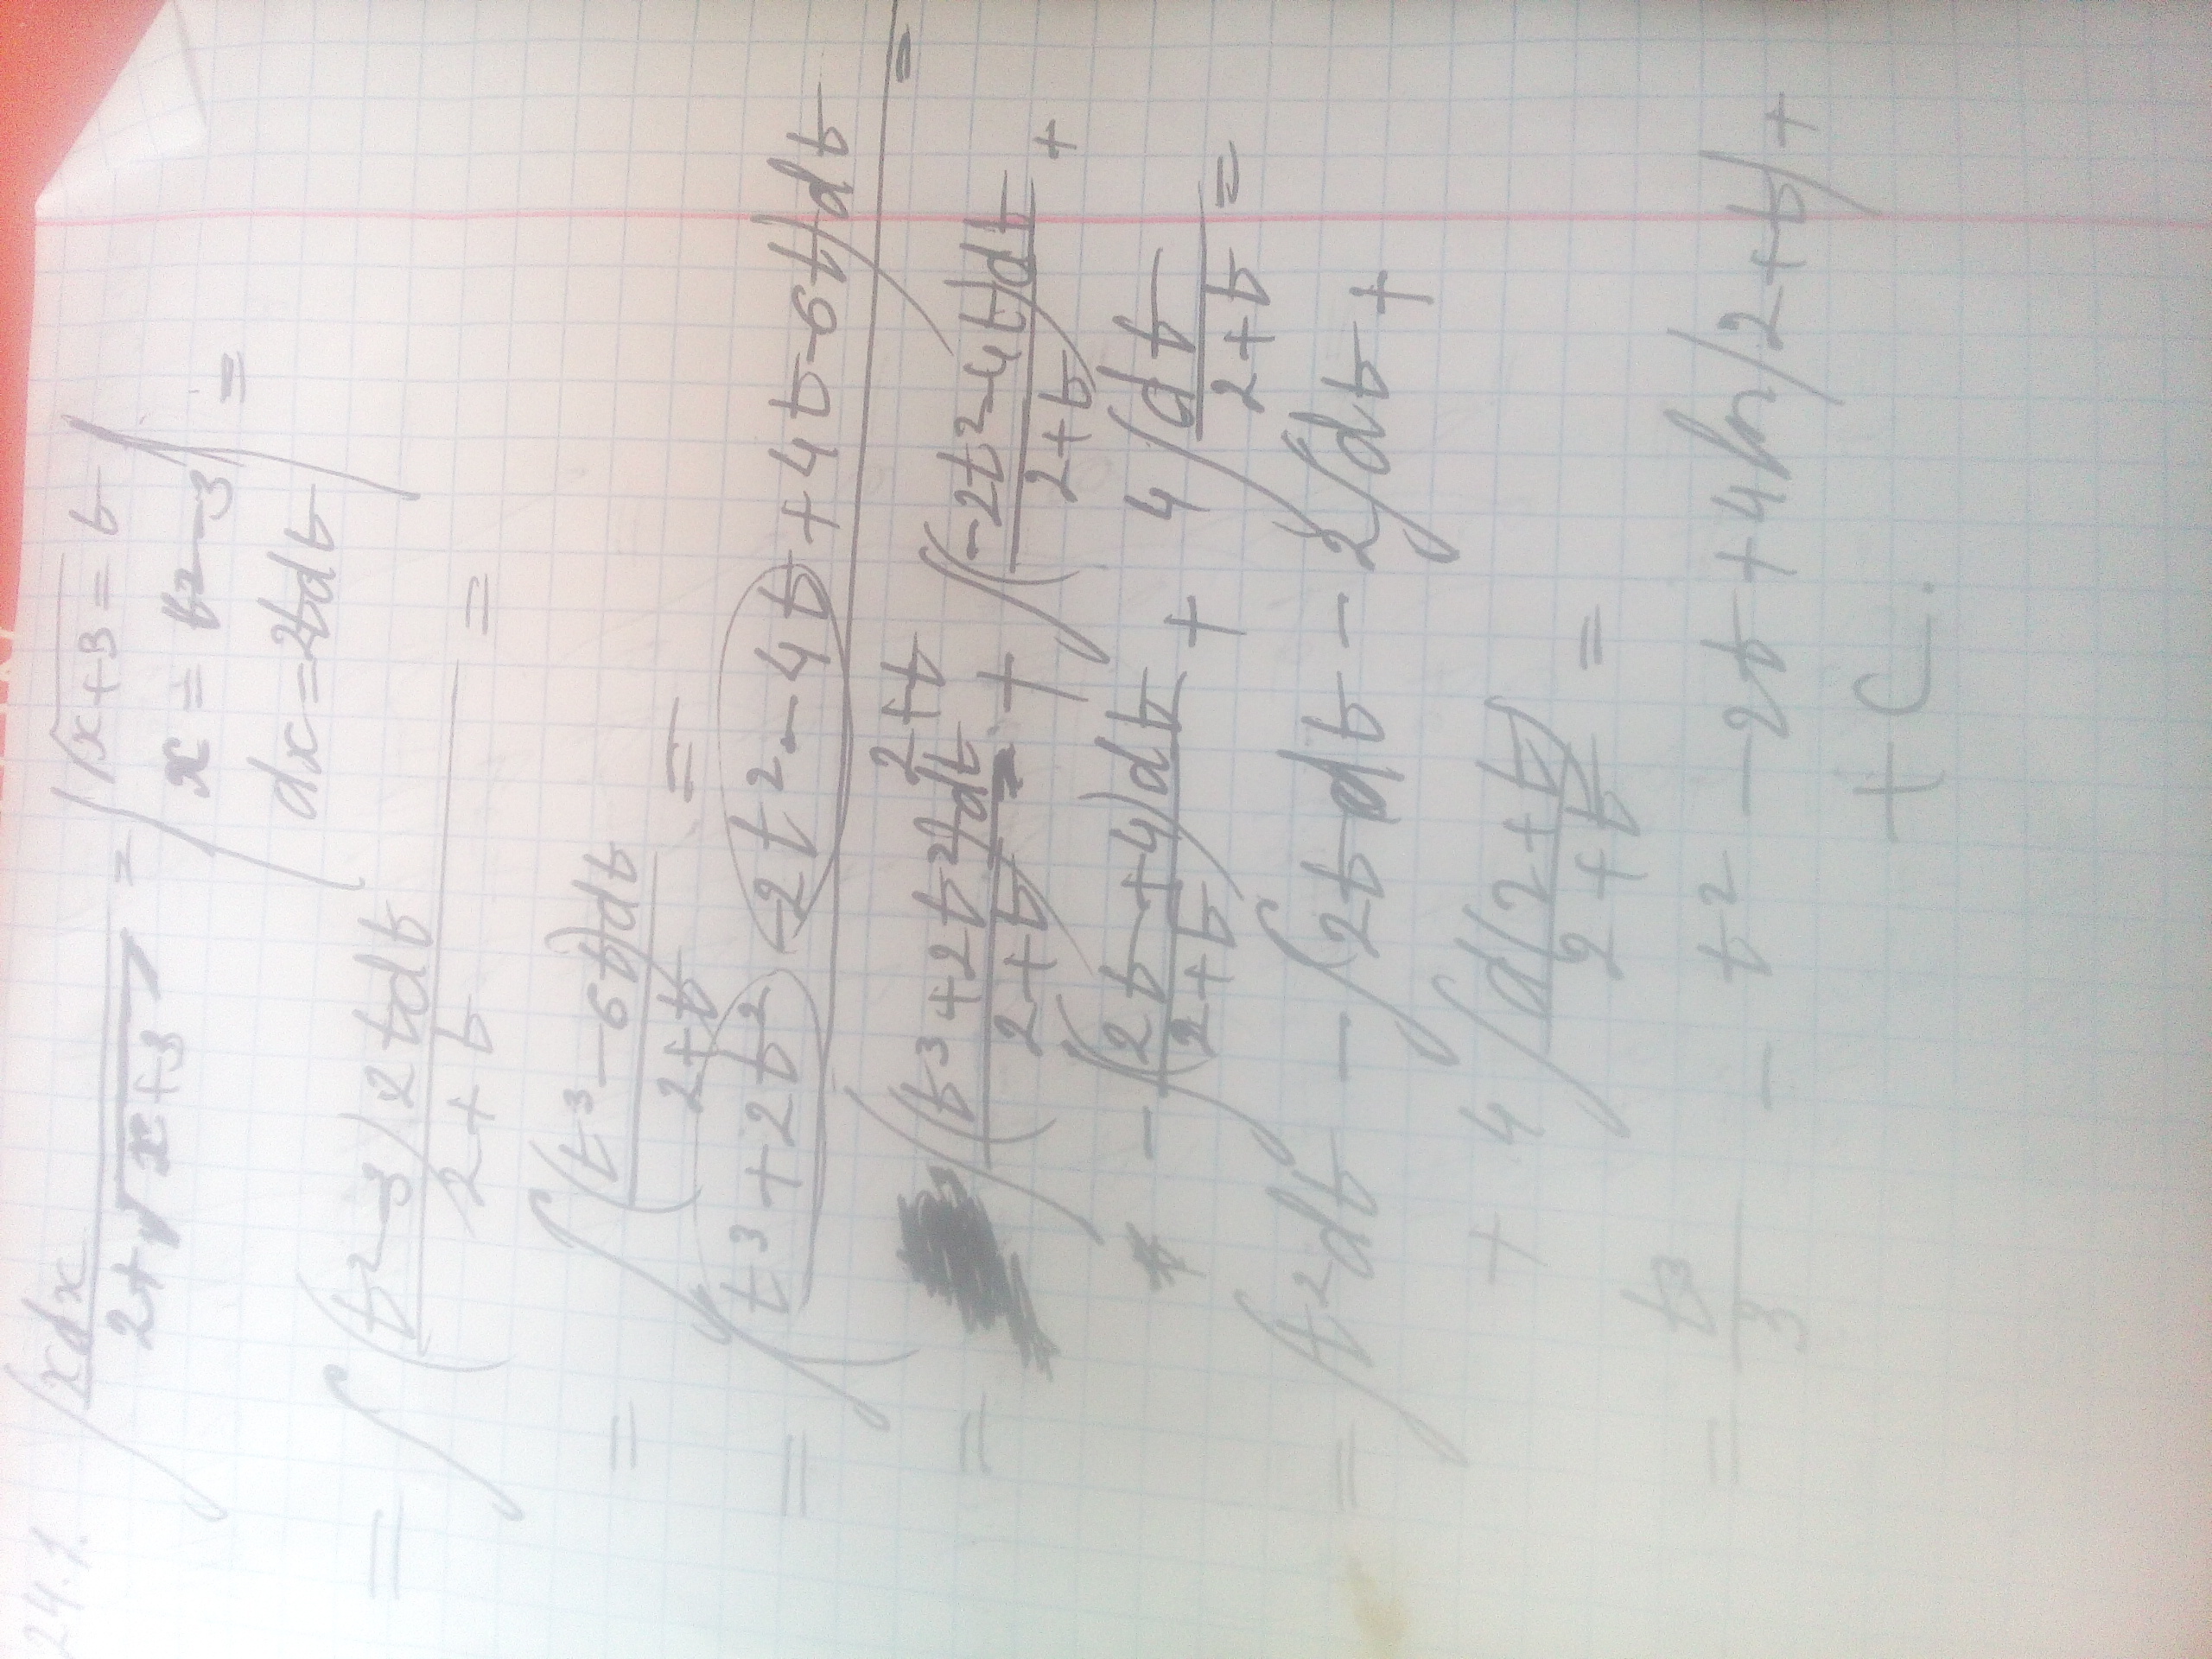 24.1. ∫ xdx / (2+√(x+3)) = | √(x+3) = t
x = t² - 3
dx = 2tdt | =
= ∫ (t² - 3) 2tdt / (2+t) =
= ∫ (t³ - 6t)dt / (2+t) =
= ∫ (t³ + 2t² - 2t² - 4t + 4t - 6t)dt / (2+t) =
= ∫ (t³ + 2t²)dt / (2+t) + ∫ (-2t² - 4t)dt / (2+t) +
- ∫ (2t + 4)dt / (2+t) + 4 ∫ dt / (2+t) =
= ∫ t²dt - ∫ 2tdt - 2∫ dt +
+ 4 ∫ d(2+t) / (2+t) =
= t³/3 - t² - 2t + 4 ln|2+t| +
+ C.